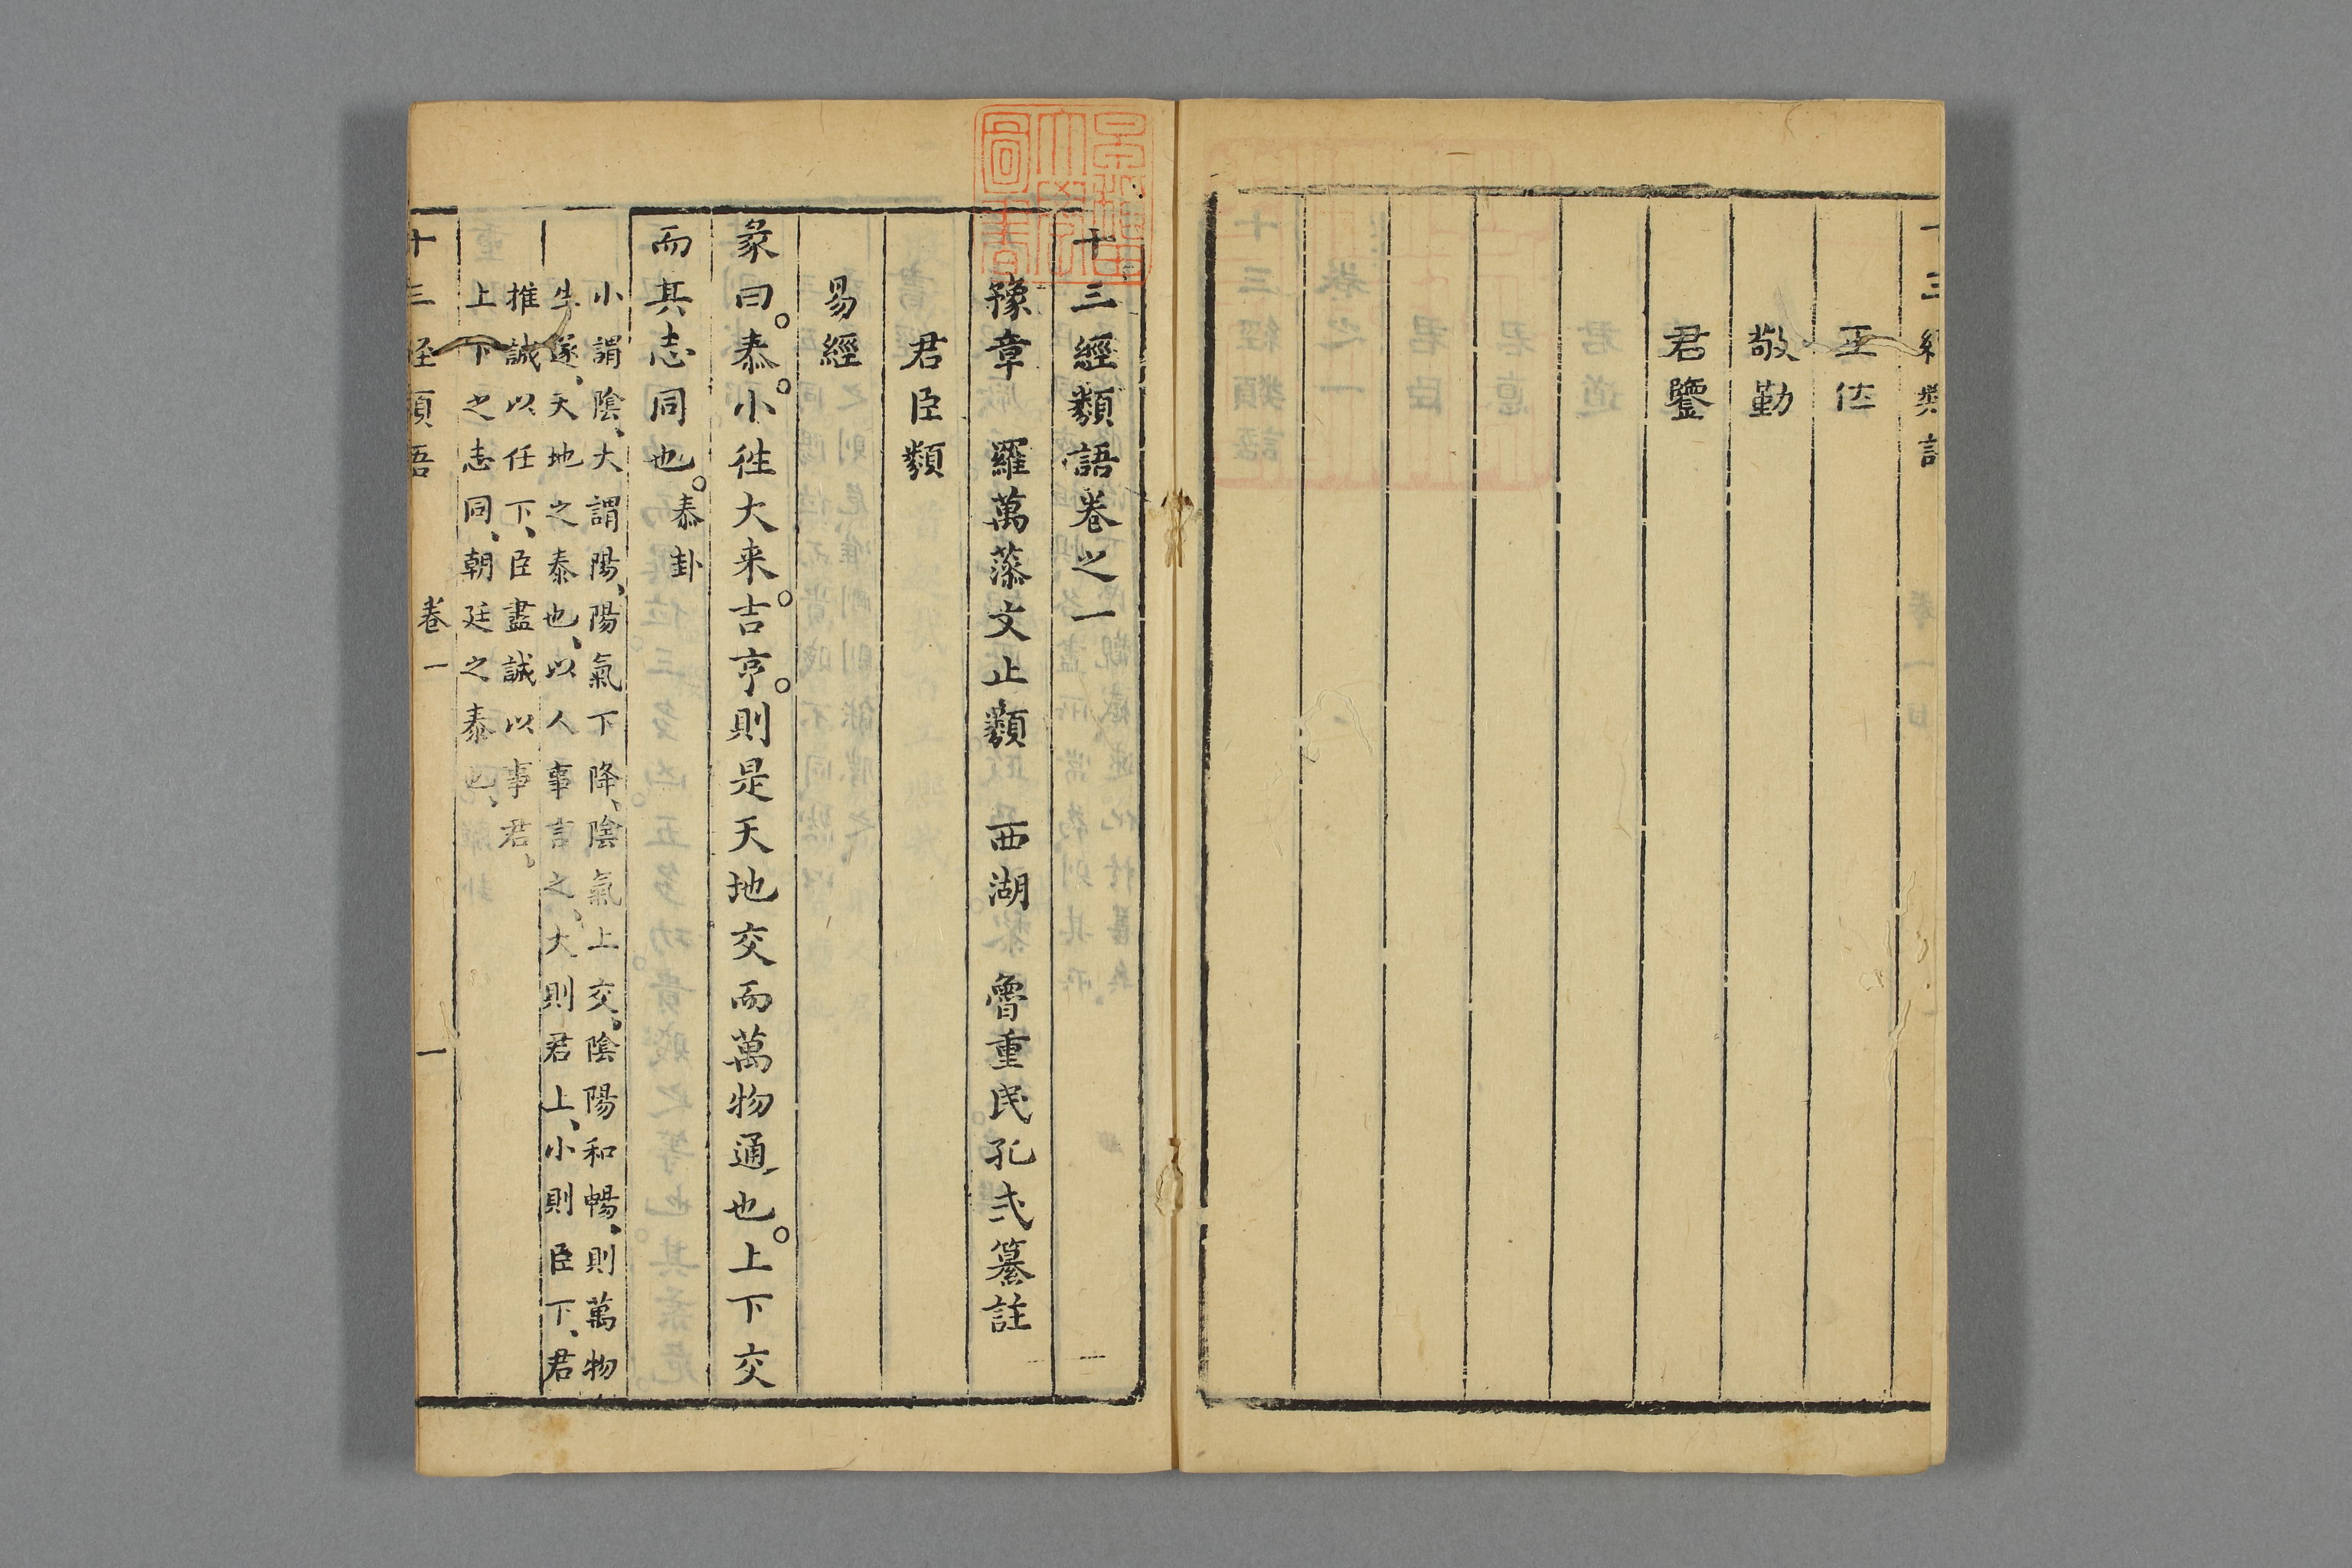 王佐
敬勤
君鑒
十三經類語卷之一
豫章 羅萬藻文止類 西湖 魯重民孔式纂註
君臣類
易經
彖曰。泰。小徃大来。吉亨。則是天地交而萬物通也。上下交
而其志同也。泰卦
小謂陰、大謂陽、陽氣下降、陰氣上交、陰陽和暢、則萬物
生遂、天地之泰也、以人事言之、大則君上、小則臣下、君
推誠以任下、臣盡誠以事君、
上下之志同、朝廷之泰也、
十三經類語 卷一 一